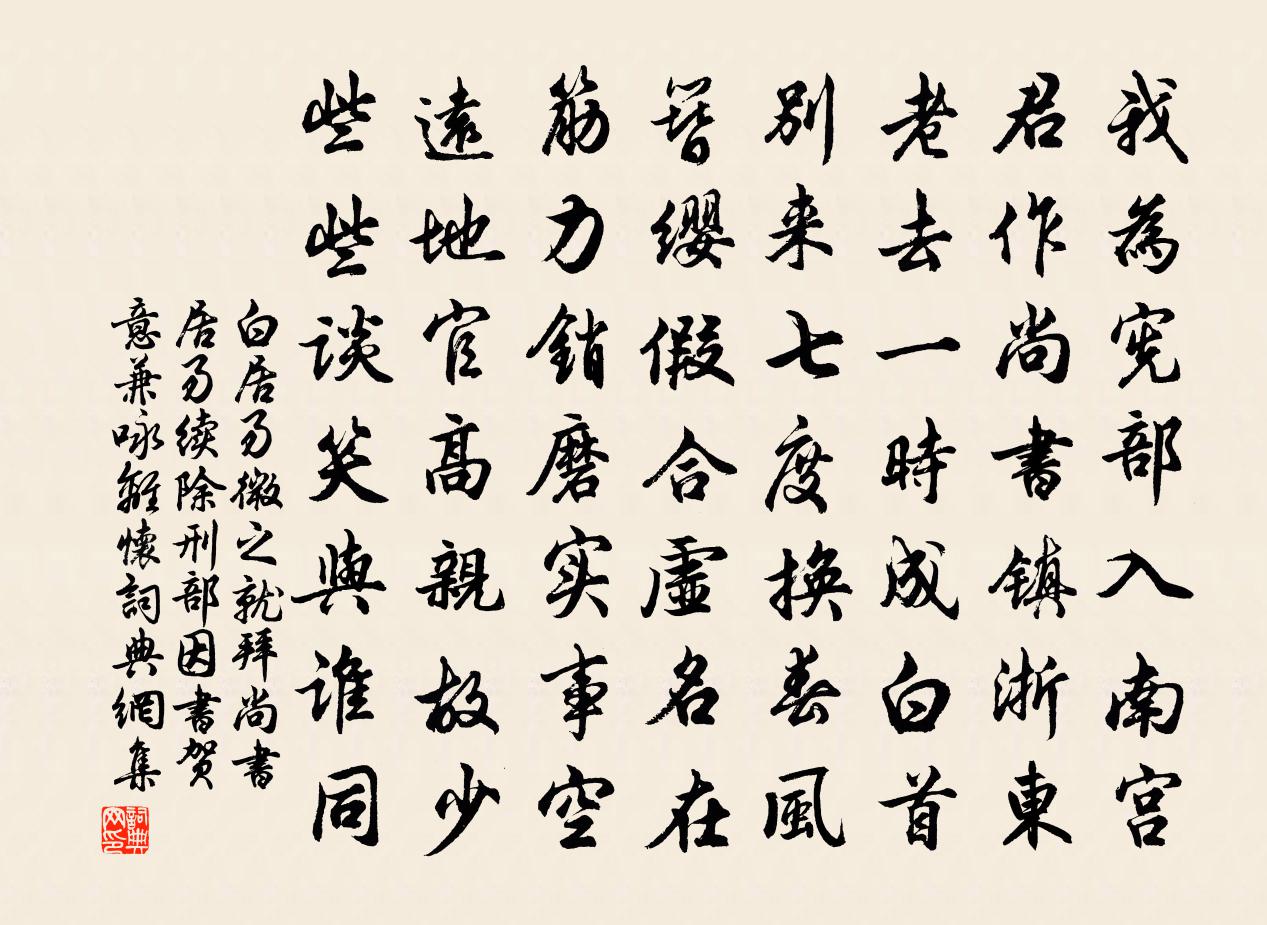 我為宪部入南宫
君作尚書鎮浙東
老去一時成白首
別来七度換春風
簪缨假合虛名在
筋力銷磨实事空
遠地官高親故少
些些談笑與誰同
白居易微之就拜尚書
居易续除刑部因書贺
意兼咏離懷詞典網集
詞典
网印